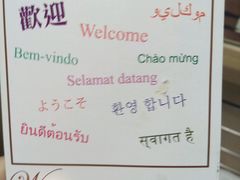 歡迎
موکلیو
Welcome
Bem-vindo
Chào mừng
Selamat datang
ようこそ
환영합니다
ยินดีต้อนรับ
स्वागत है